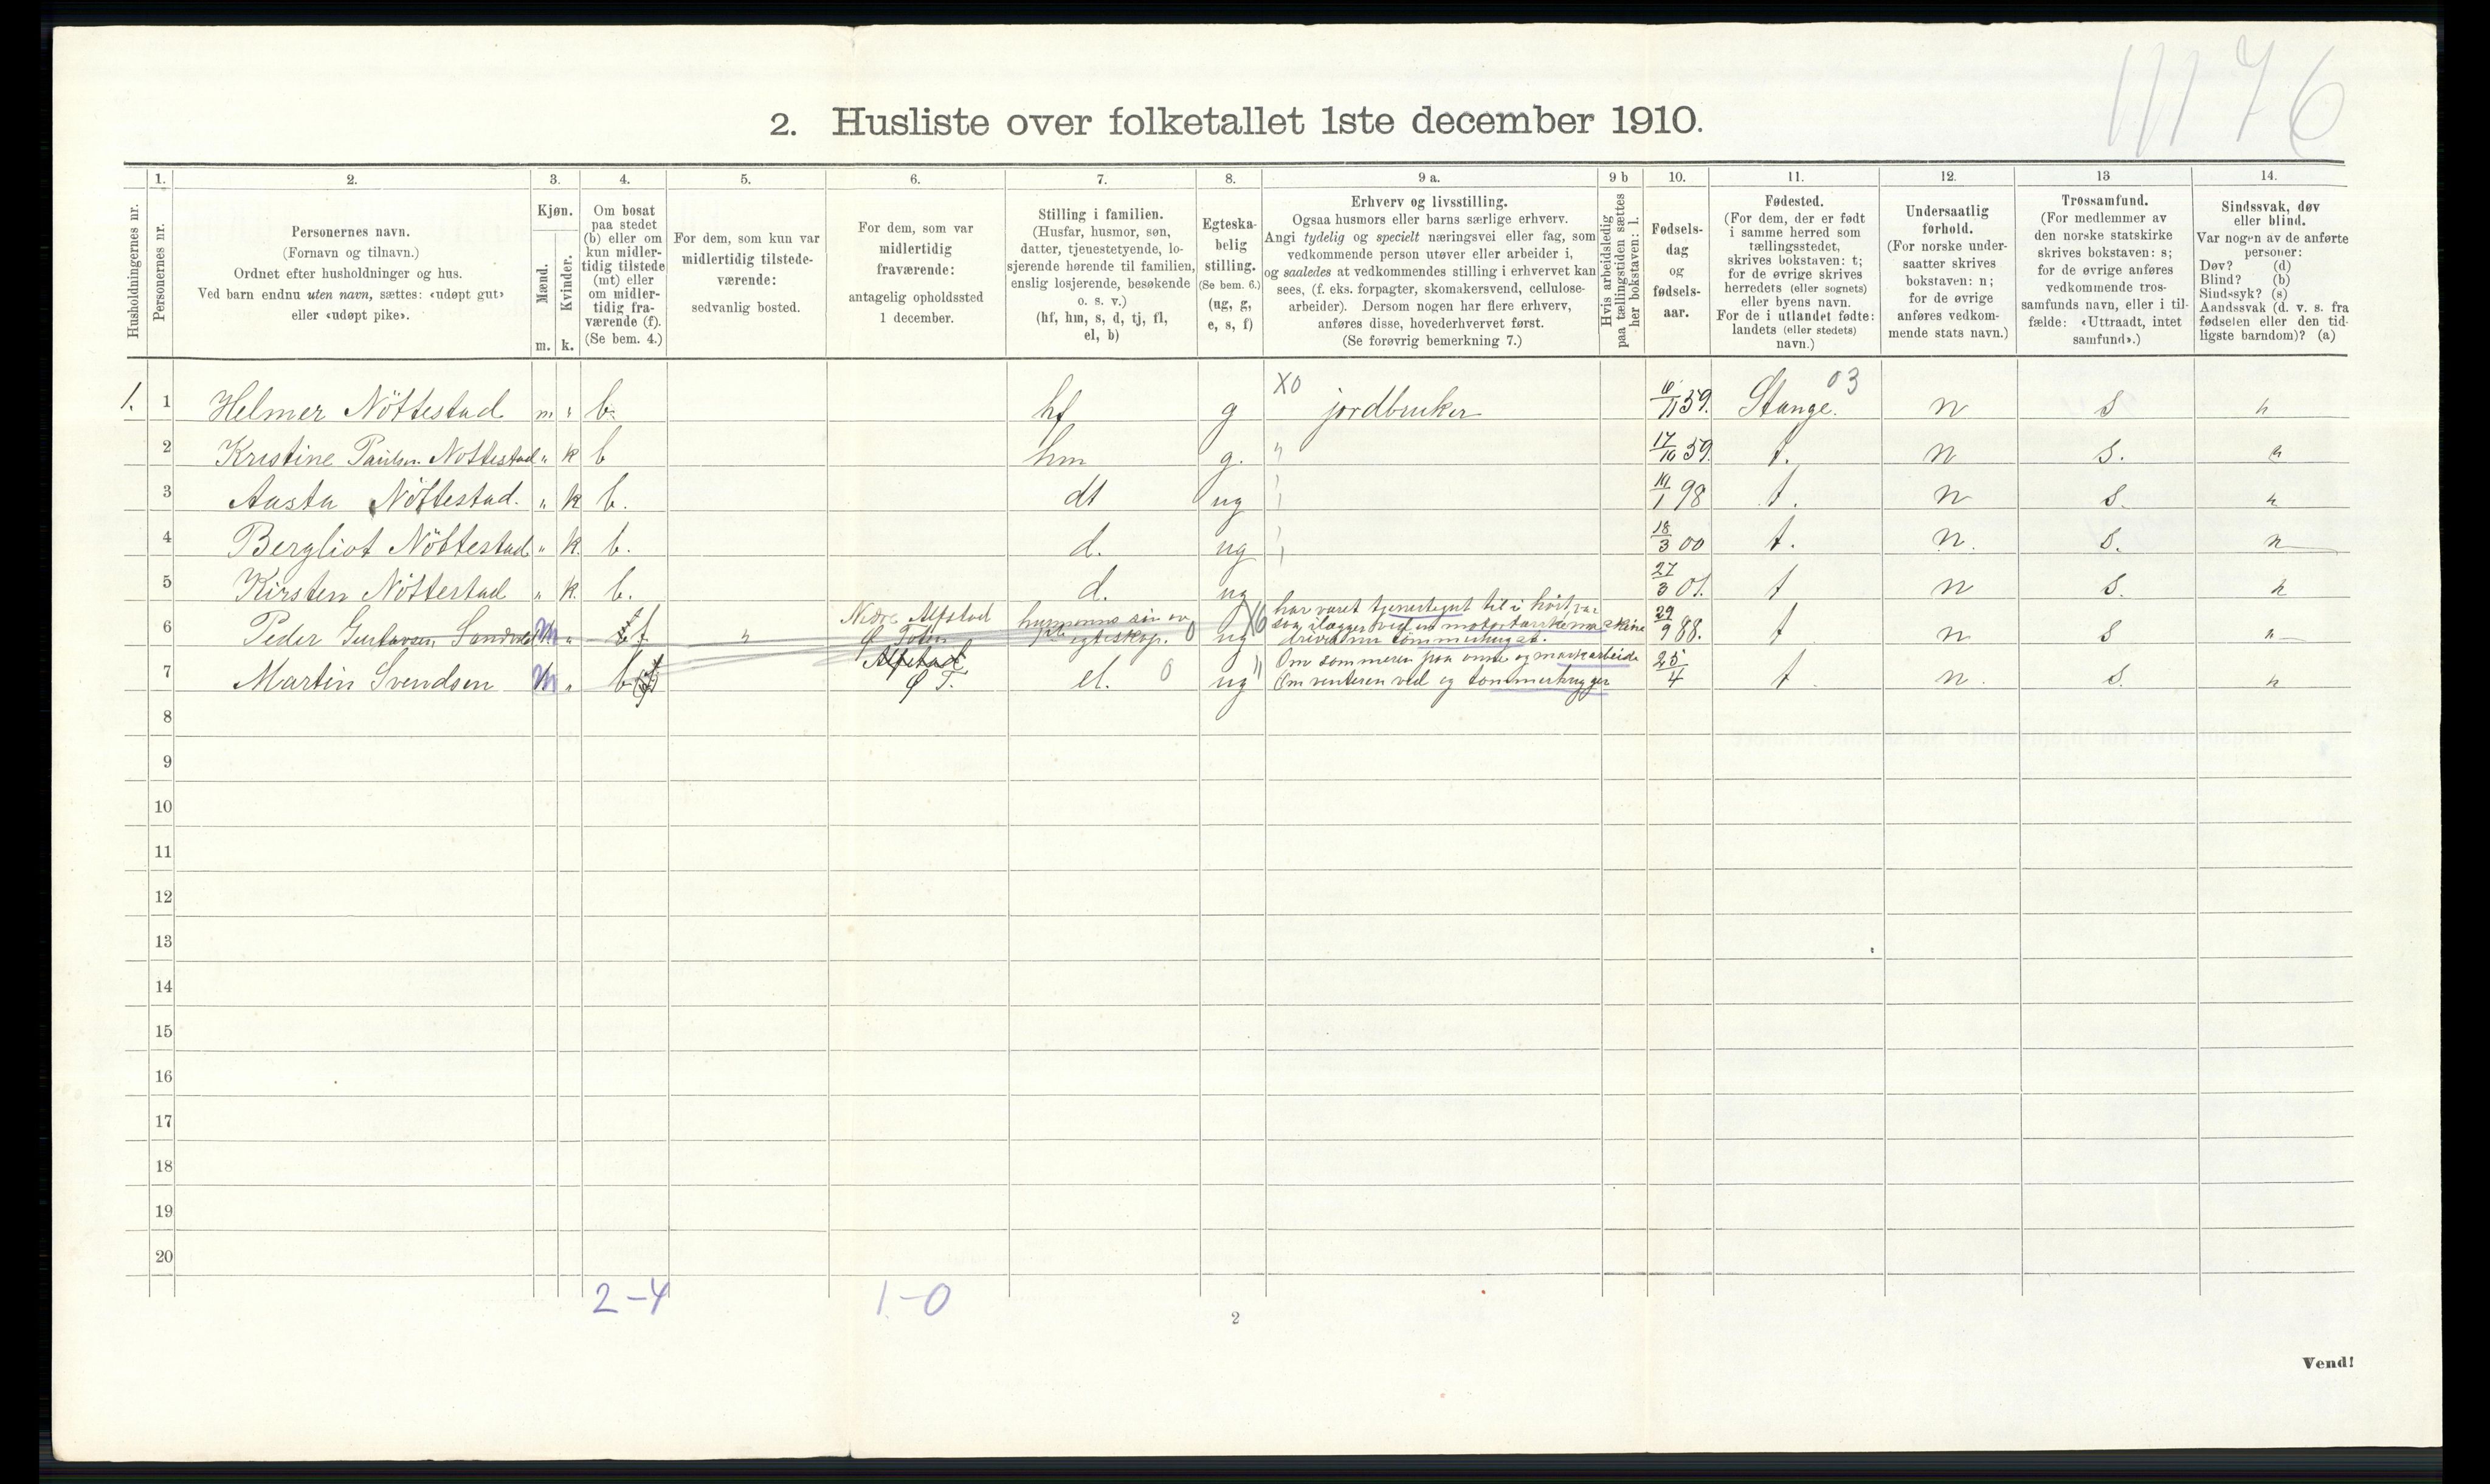 11176
2. Husliste over folketallet 1ste december 1910.
Husholdningernes nr.
1.
Personernes nr.
2.
Personernes navn.
(Fornavn og tilnavn.)
Ordnet efter husholdninger og hus.
Ved barn endnu uten navn, sættes: «udøpt gut»
eller «udøpt pike».
3.
Kjøn.
Mænd.
Kvinder.
m. k.
4.
Om bosat
paa stedet
(b) eller om
kun midler-
tidig tilstede
(mt) eller
om midler-
tidig fra-
værende (f).
(Se bem. 4.)
5.
For dem, som kun var
midlertidig tilstede-
værende:
sedvanlig bosted.
6.
For dem, som var
midlertidig
fraværende:
antagelig opholdssted
1 december.
7.
Stilling i familien.
(Husfar, husmor, søn,
datter, tjenestetyende, lo-
sjerende hørende til familien,
enslig losjerende, besøkende
o. s. v.)
(hf, hm, s, d, tj, fl,
el, b)
8.
Egteska-
belig
stilling.
(Se bem. 6.)
(ug, g,
e, s, f)
9 a.
Erhverv og livsstilling.
Ogsaa husmors eller barns særlige erhverv.
Angi tydelig og specielt næringsvei eller fag, som
vedkommende person utøver eller arbeider i,
og saaledes at vedkommendes stilling i erhvervet kan
sees, (f. eks. forpagter, skomakersvend, cellulose-
arbeider). Dersom nogen har flere erhverv,
anføres disse, hovederhvervet først.
(Se forøvrig bemerkning 7.)
9 b
Hvis arbeidsledig
paa tællingstiden sættes
her bokstaven: l.
10.
Fødsels-
dag
og
fødsels-
aar.
11.
Fødested.
(For dem, der er født
i samme herred som
tællingsstedet,
skrives bokstaven: t;
for de øvrige skrives
herredets (eller sognets)
eller byens navn.
For de i utlandet fødte:
landets (eller stedets)
navn.)
12.
Undersaatlig
forhold.
(For norske under-
saatter skrives
bokstaven: n;
for de øvrige
anføres vedkom-
mende stats navn.)
13
Trossamfund.
(For medlemmer av
den norske statskirke
skrives bokstaven: s;
for de øvrige anføres
vedkommende tros-
samfunds navn, eller i til-
fælde: «Uttraadt, intet
samfund».)
14.
Sindssvak, døv
eller blind.
Var nogen av de anførte
personer:
Døv? (d)
Blind? (b)
Sindssyk? (s)
Aandssvak (d. v. s. fra
fødselen eller den tid-
ligste barndom)? (a)
1. 1 Helmer Nöttestad m " b. hf g X0 jordbruker 6/11 59. Stange. 03 n s n
2 Kristine Paulsen Nöttestad " k b hm g. " 17/10 59. t. n s. n
3 Aasta Nöttestad. " k b. dt ug " 1 98 t. n s. n
4 Bergliot Nöttestad " k. b. d. ug " 18/3 00 t. n. s. n
5 Kirsten Nöttestad " k. b. d. ug 27/3 01. t n s. n
6 Peder Gustavsen m " f " Nedre Alfstad Ø Toten husmorens sön av egteskap. 0 ug har været til i höst var som ved en driver nu tömmerhugst. 29/9 88. t n s n
7 Martin Svendsen m " b Alfstad Ø T. el. 0 ug " Om sommeren paa onne og markarbeide Om venteren ved og tommerhugger 25/4 t n. s. n
8
9
10
11
12
13
14
15
16
17
18
19
20
2-4 1-0
2
Vend!